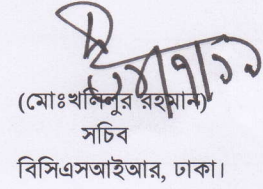 (মোঃখলিলুর রহমান)
সচিব
বিসিএসআইআর, ঢাকা।